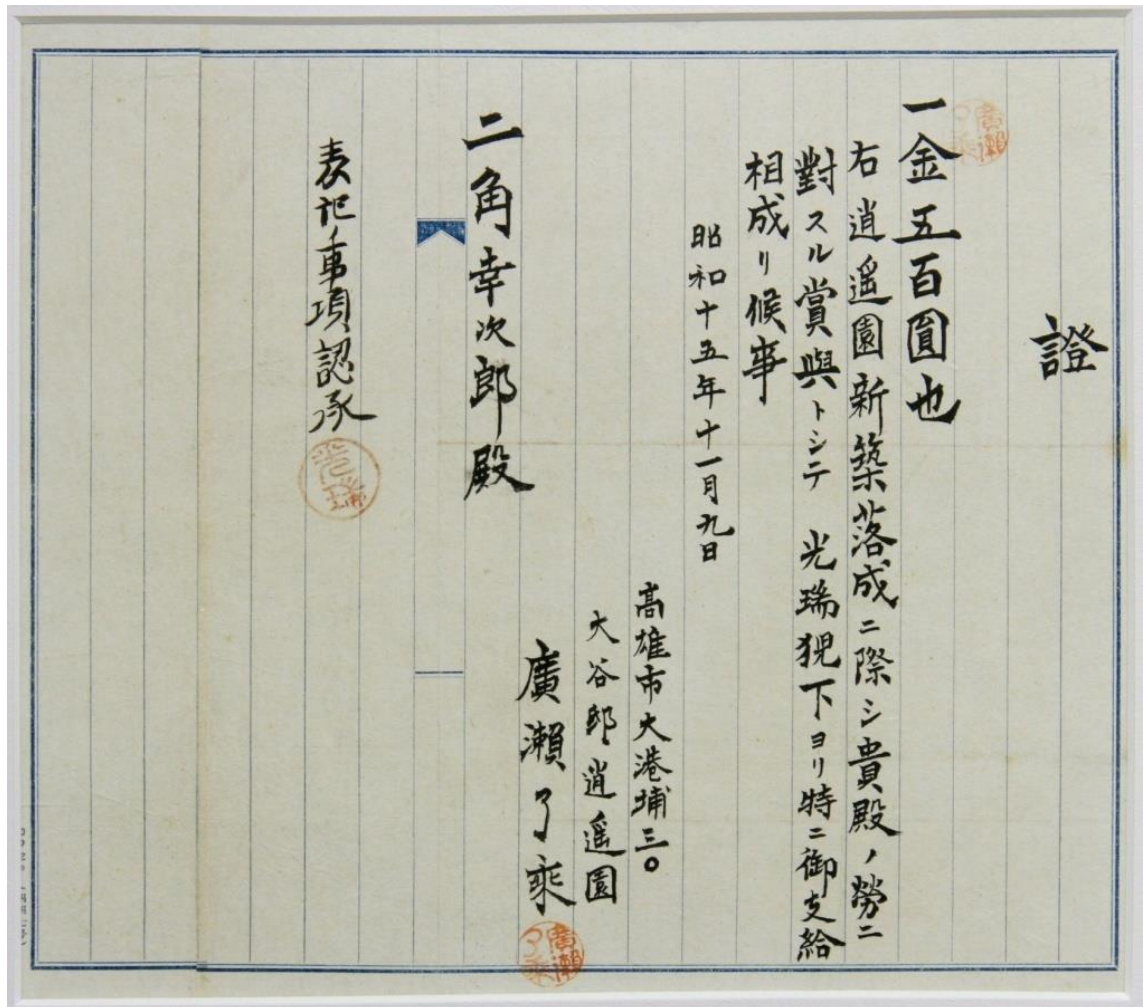 證
一金五百圓也
右逍遥園新築落成ニ際シ貴殿ノ勞ニ
對スル賞與トシテ 光瑞猊下ヨリ特ニ御支給
相成リ候事
昭和十五年十一月九日
高雄市大港埔三〇
大谷邸逍遥園
廣瀬了乘
二角幸次郎殿
表記ノ事項認承
廣瀬了乘
廣瀬了乘